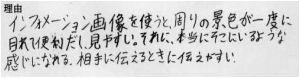 理由
インフォメーション画像を使うと、周りの景色が一度に
見れて便利だし、見やすい。それに、本当にそこにいるような
感じになれる。相手に伝えるときに伝えやすい